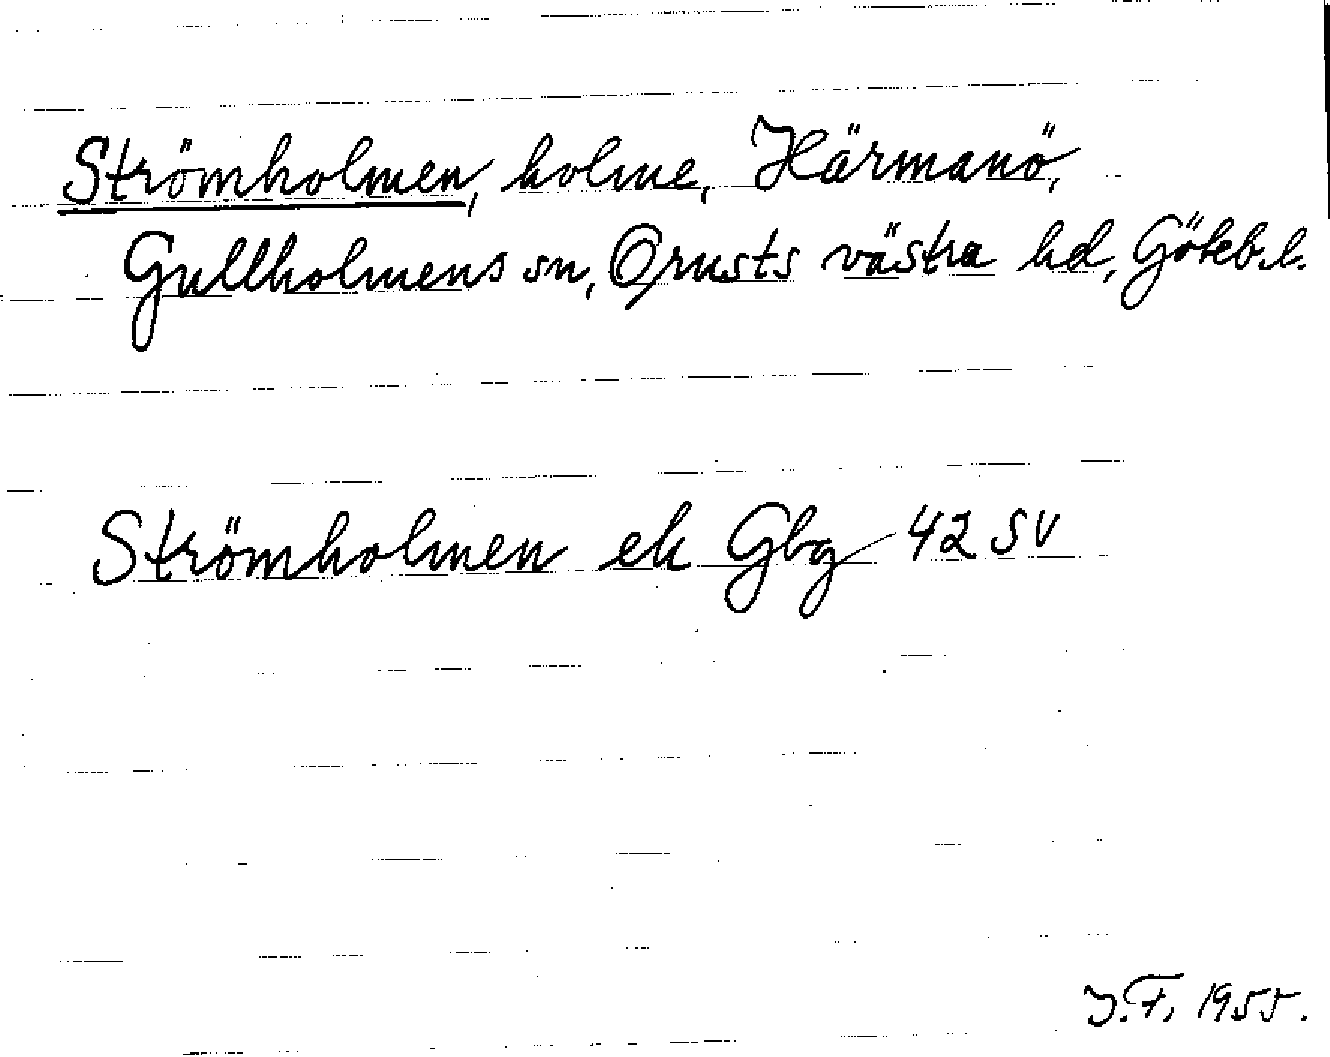 Strömholmen, holme, Härmanö,
Gullholmens sn, Orusts västra hd, Göteb.l.
Strömholmen ek Gbg 42 SV
J.F. 1955.